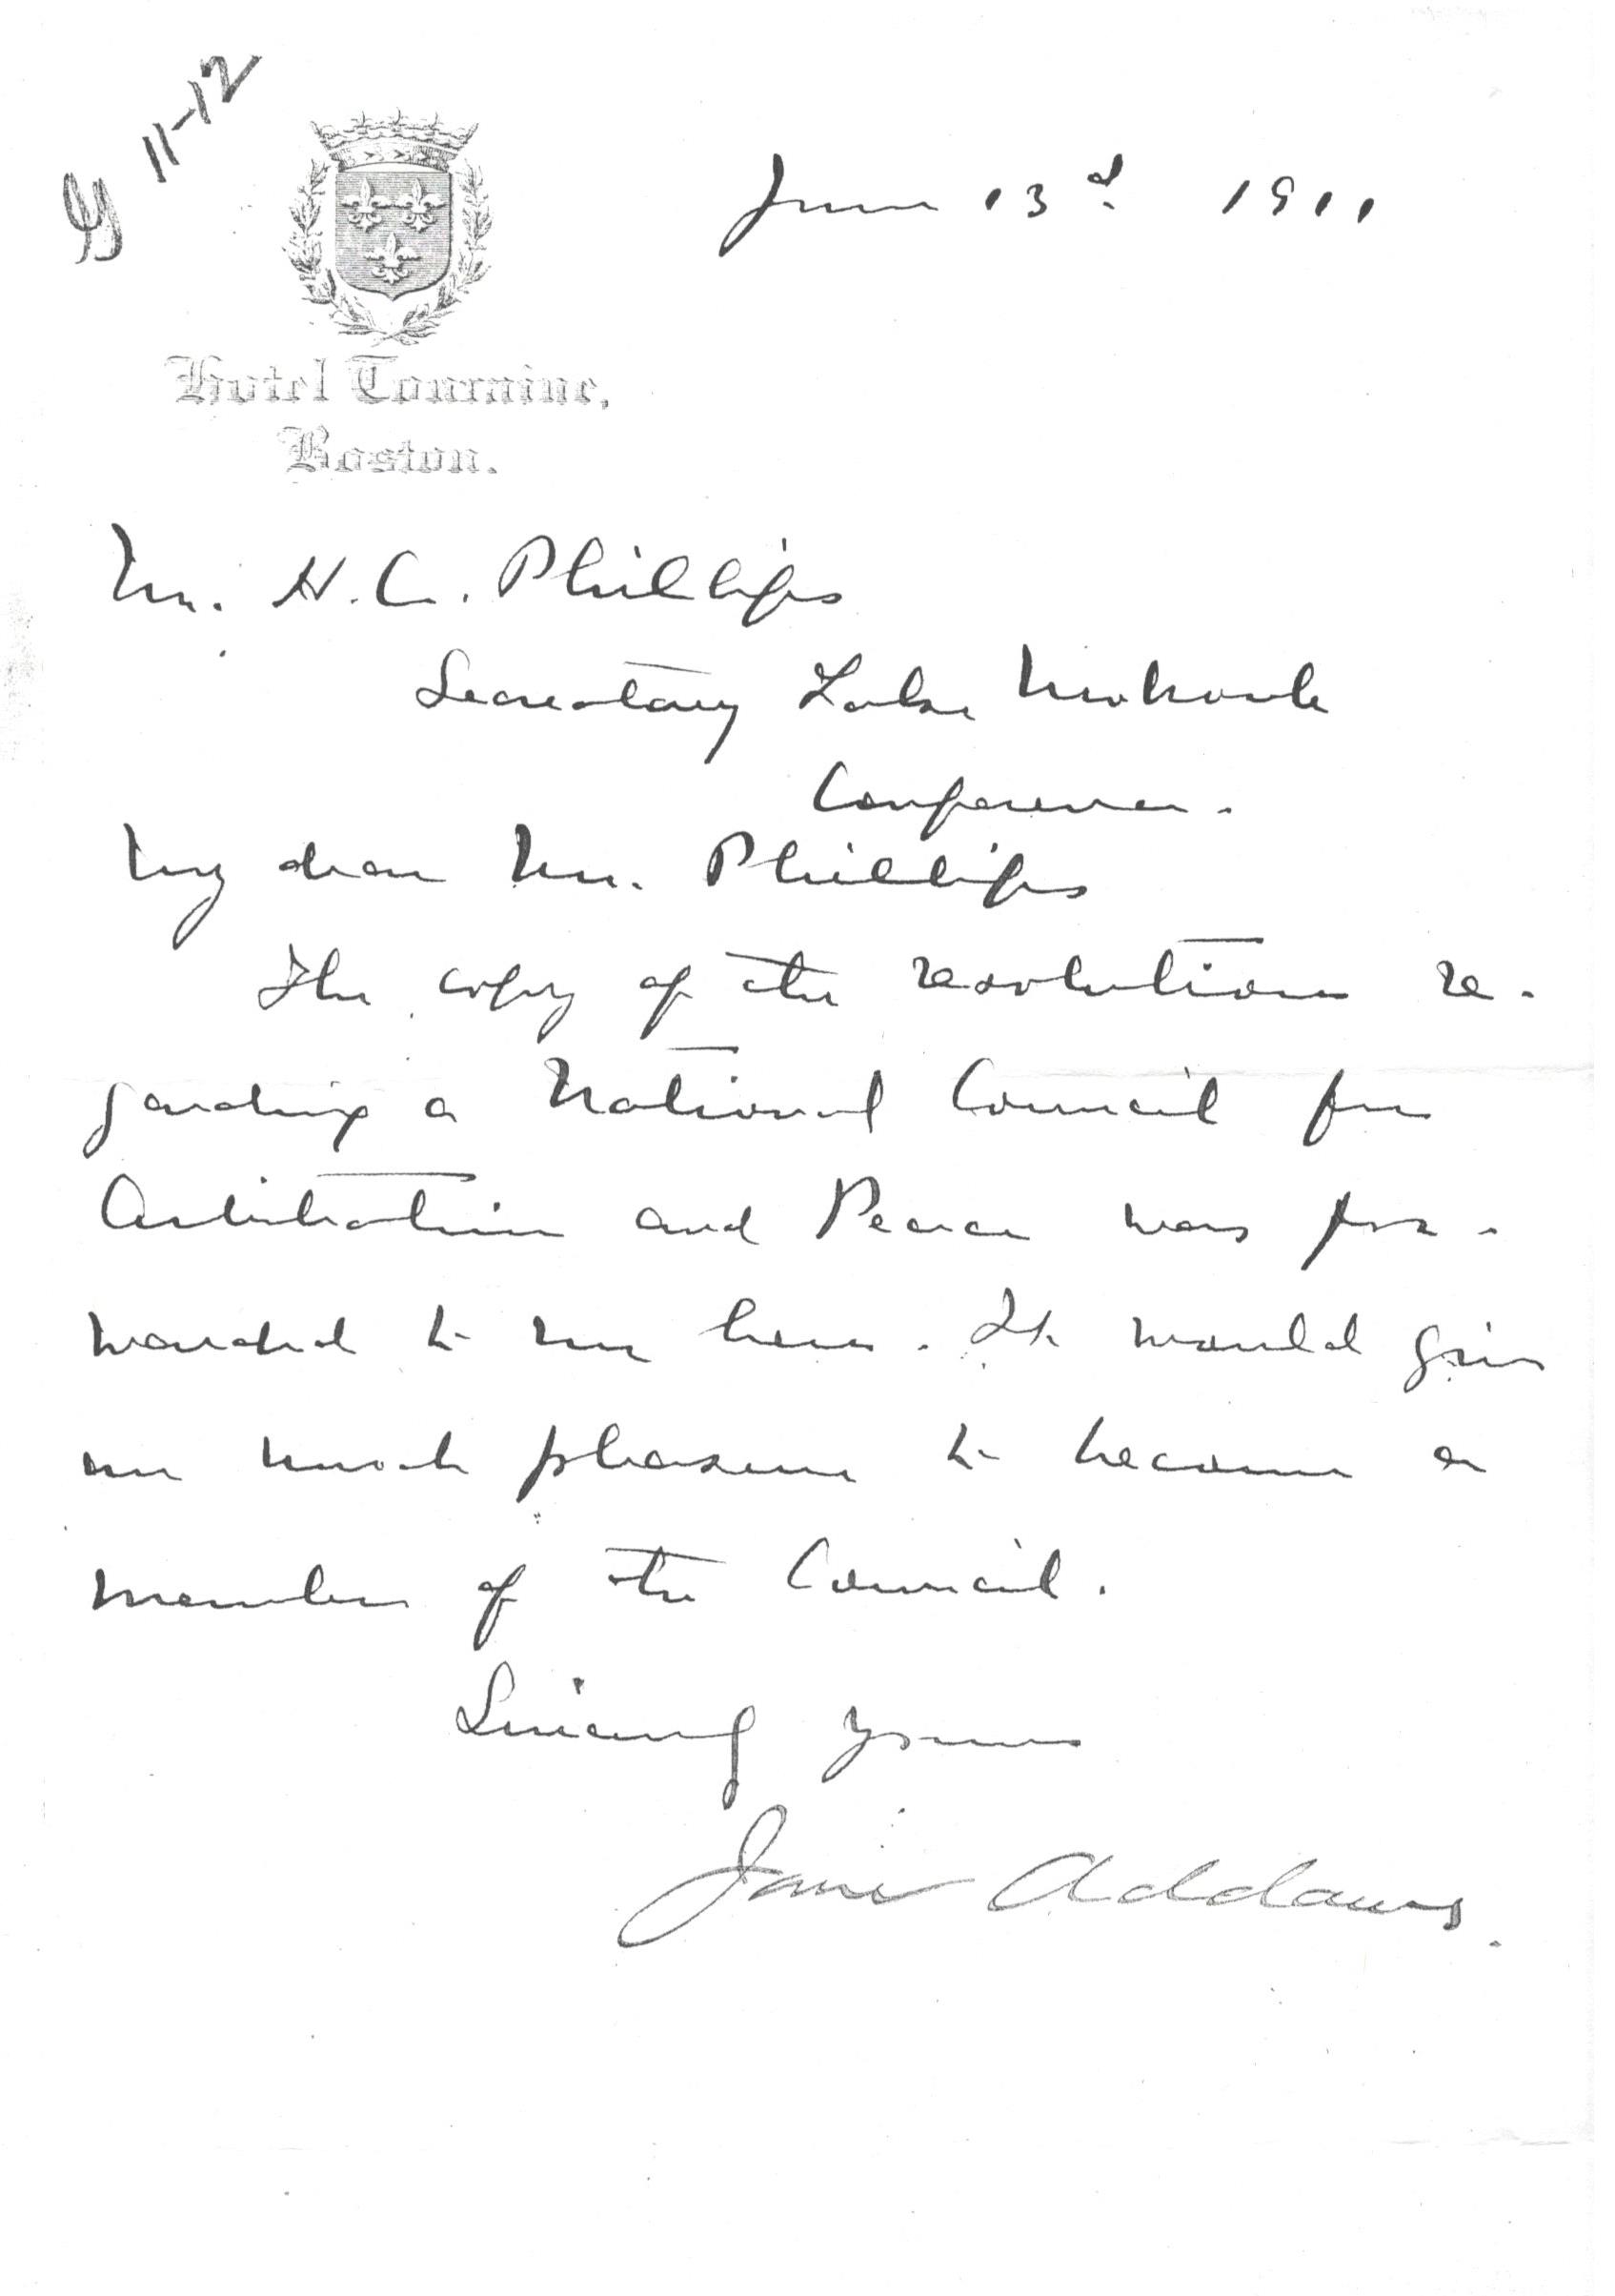 11-12
June 13d. 1911
Hotel Touraine,
Boston.
Mr. H. C. Phillips
Secretary Lake Mohonk
Conference.
My dear Mr. Phillips
The copy of the resolutions re-
garding a National Council for
Arbitration and Peace was for-
warded to me here. It would give
me much pleasure to become a
member of the Council.
Sincerely yours
Jane Addams.